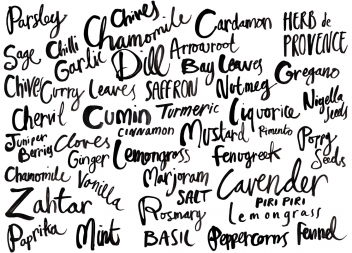 Parsley
Chives
Chamomile
Cardamon
HERB de
PROVENCE
Sage
Chilli
Garlic
Dill
Arrowroot
Bay Leaves
Oregano
Chive
Curry Leaves
SAFFRON
Nutmeg
Nigella
Seeds
Chervil
Cumin
Turmeric
Liquorice
CINNAMON
Mustard
Pimento
Poppy
Seeds
Juniper
Berries
Cloves
Ginger
Lemongrass
Fenugreek
Chamomile
Vanilla
Marjoram
Cavender
Zahtar
SALT
Rosmary
PIRI PIRI
Lemongrass
Paprika
Mint
BASIL
Peppercorns
Fennel